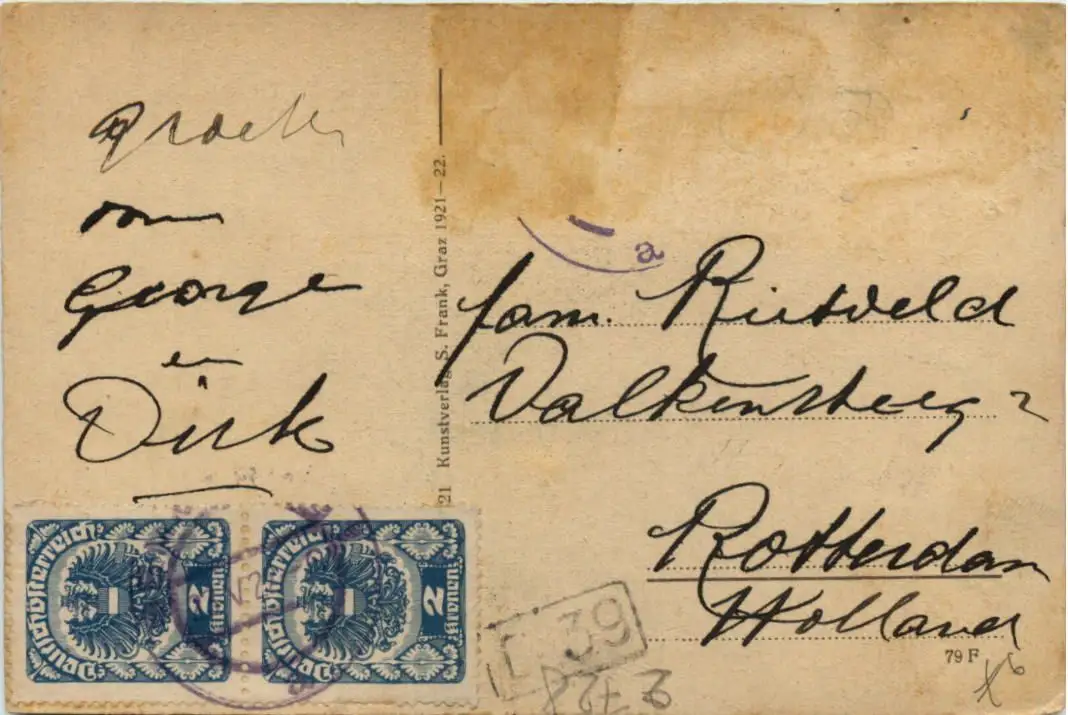 Groeten
van
George
en
Dirk
21 Kunstverlag S. Frank, Graz 1921—22.
a
fam. Rietveld
Valkensteeg 2
Rotterdam
Holland
79 F
Deutschösterreich
2
Kronen
Deutschösterreich
2
Kronen
39
272
x 6